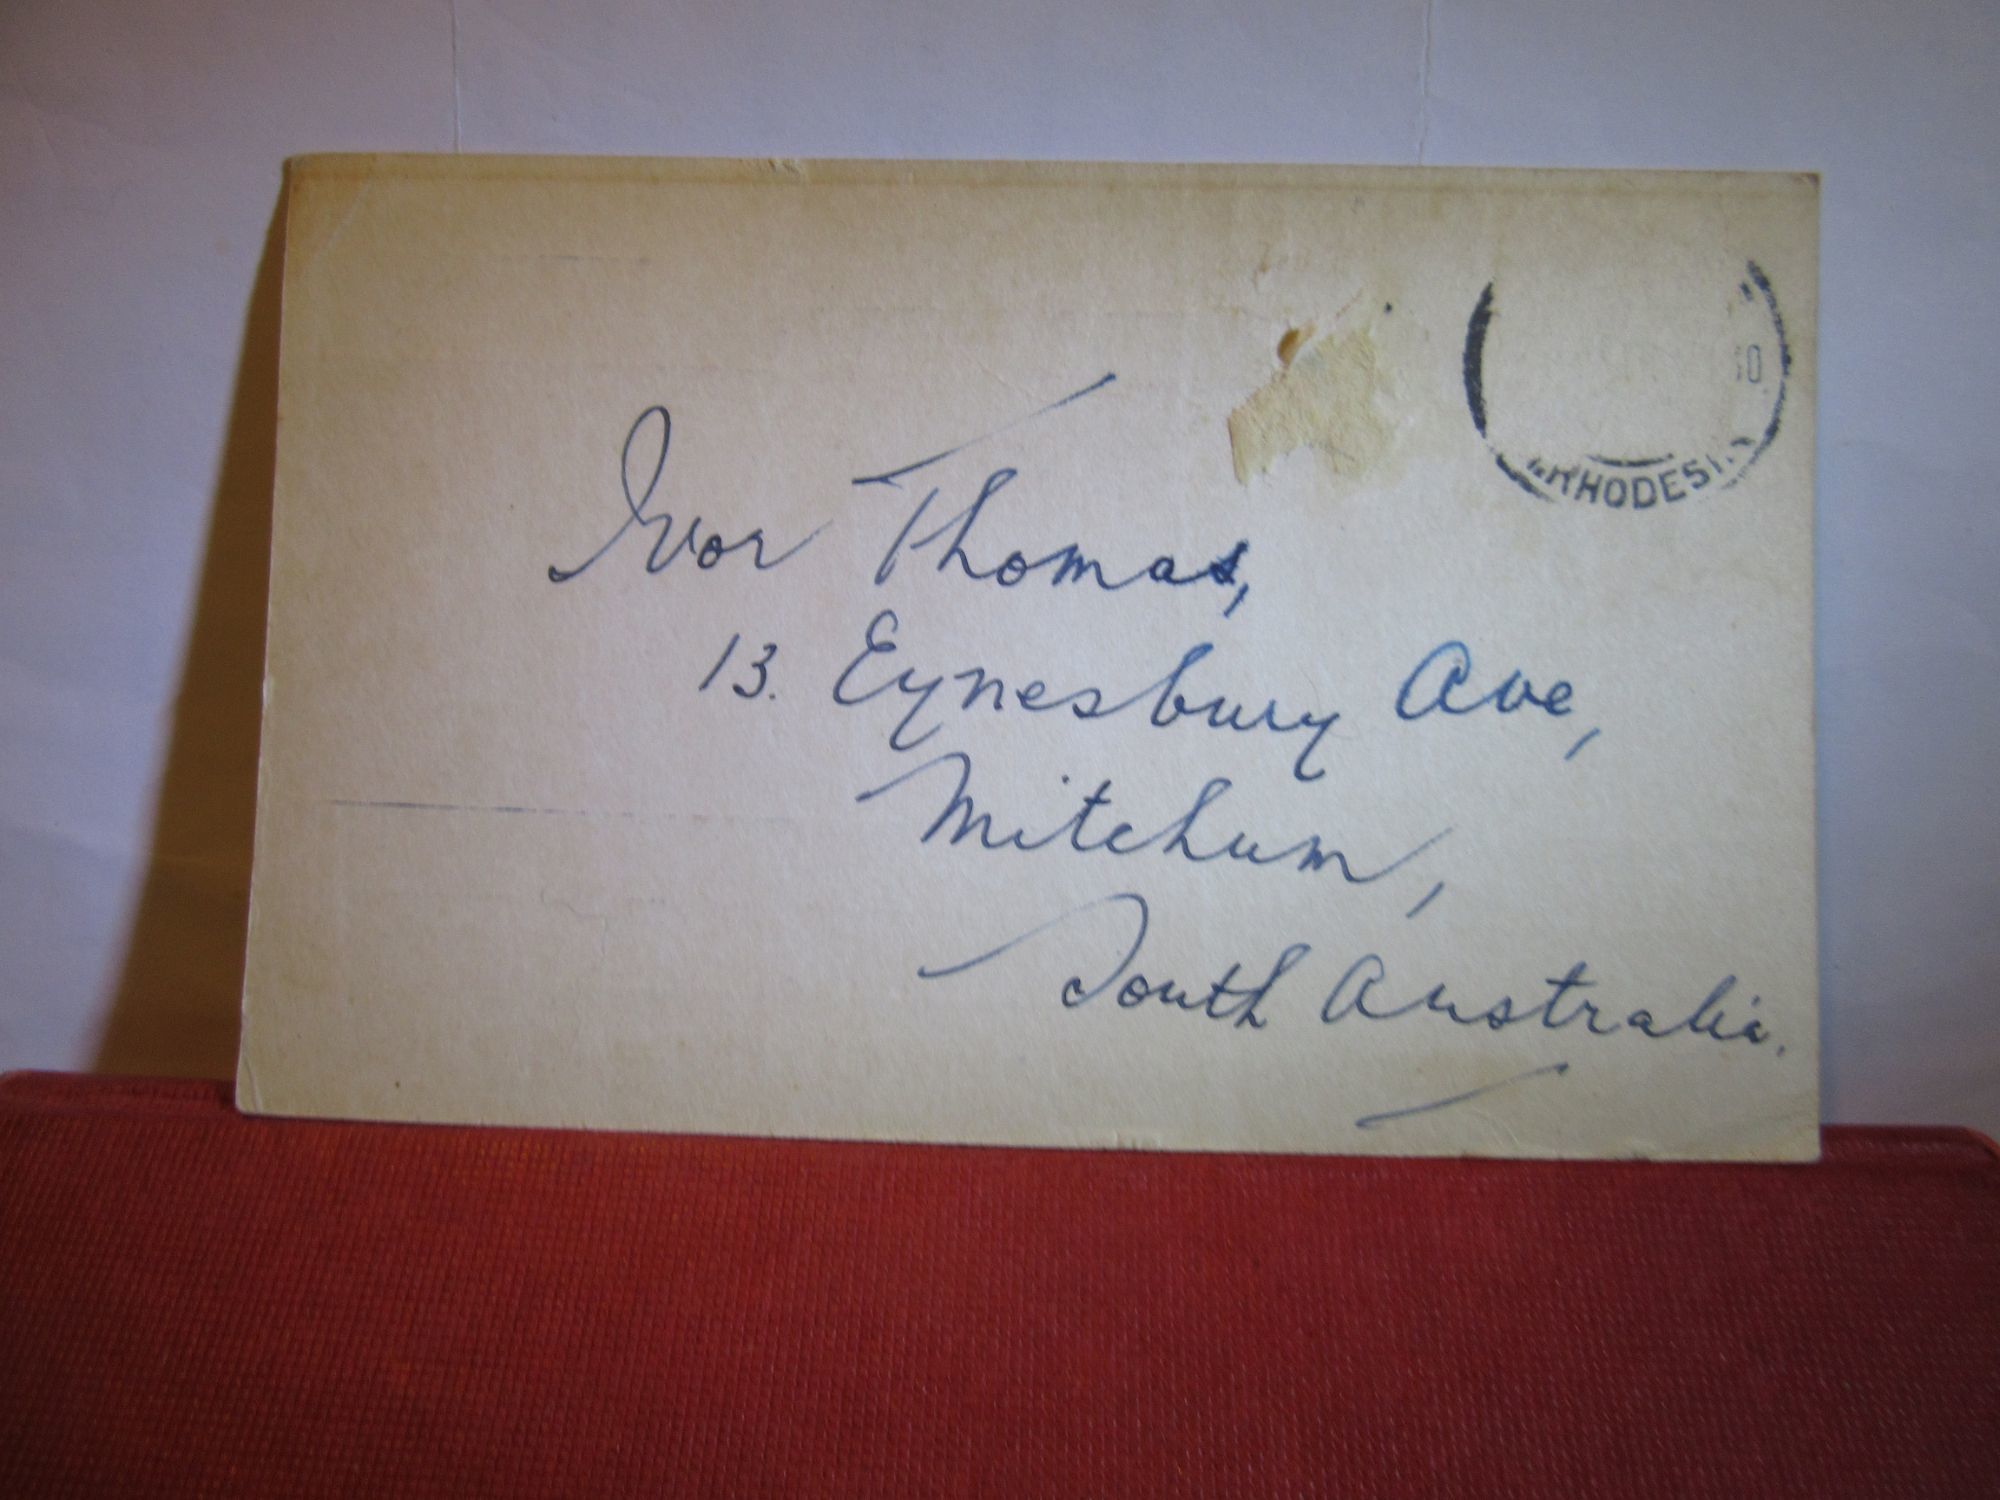 Ivor Thomas,
13. Eynesbury Ave,
Mitchum,
South Australia.